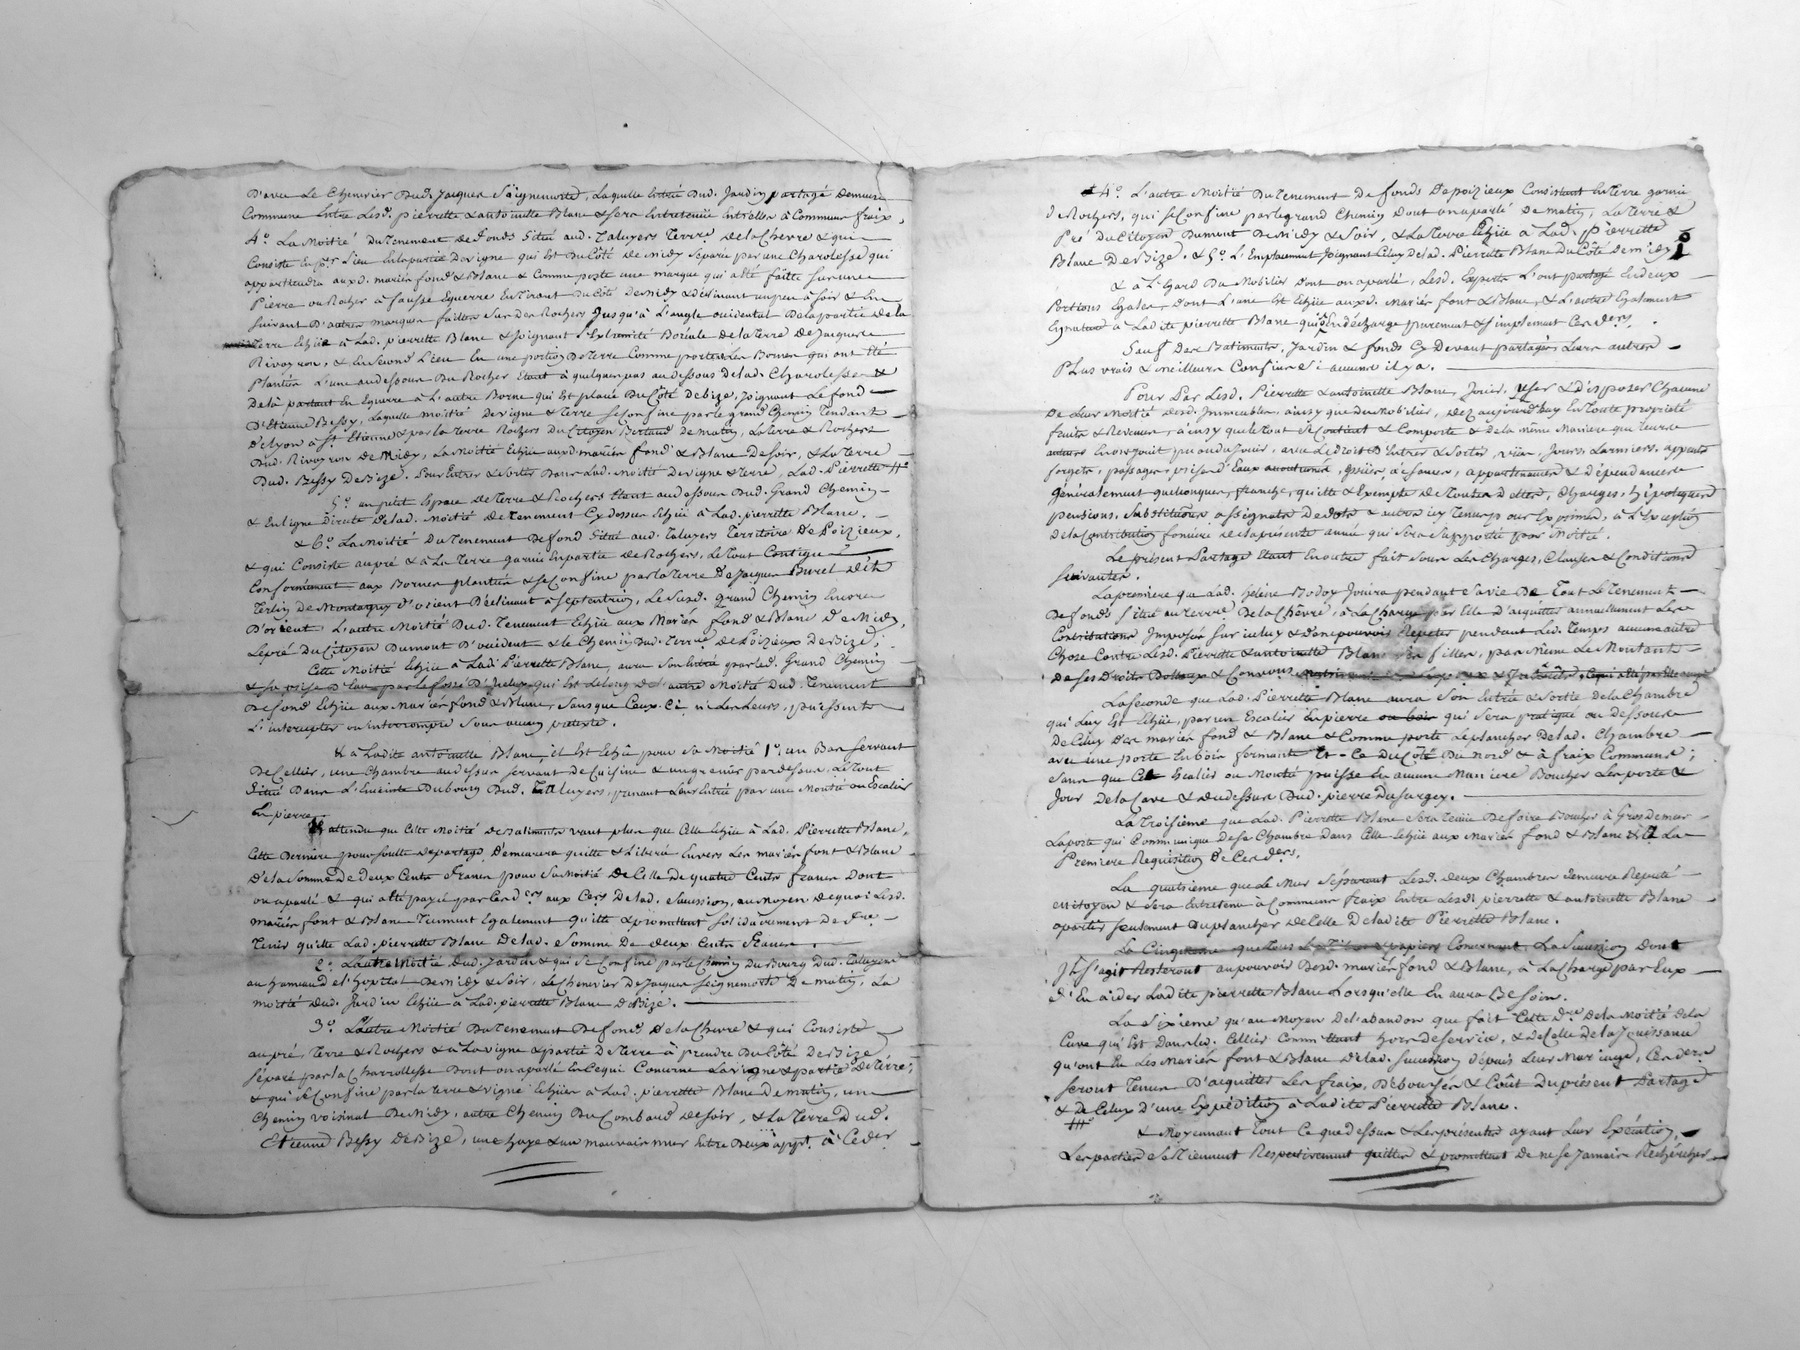 D'avec Le Chenevier Dud. Jacques Seignemorte, Laquelle Entrée Dud. Jardin partagé Demeure
Commune Entre Lesd. pierrette & antoinette Blanc & sera Entretenüe Entr'elles à Commune fraix,
4.° La Moitié Du Tenement de fonds Situé aud. Taluyers Terre. De la Chevre & qui
Consiste En per. Lieu En la partie De vigne qui Est Du Côté De Midy séparée par une Charolesse qui
appartiendra auxd. mariés fond & Blanc & Comme porte une marque qui a été faitte sur une
Pierre ou Rocher à fausse Equerre En Tirant Du Côté De Midy & Déclinant un peu à Soir & En
suivant D'autres marques faittes Sur Des Rochers Jusqu'à L'angle occidental De la partie de la
Terre Echüe à Lad. pierrette Blanc & Joignant L'Extremité Boréale de la Terre De Jacques
Rivoyron, & En Second Lieu En une portion De Terre Comme portent Les Bornes qui ont Eté
Plantées L'une au dessous Du Rocher Etant à quelques pas au dessous De lad. Charolesse &
De là partant En Equerre à L'autre Borne qui Est placée Du Côté De bize, Joignant Le fond
D'Etienne Bessy, Laquelle moitié De vigne & Terre Se Confine par le grand Chemin Tendant
De Lyon à St. Etienne & par la Terre Rochers Du Citoyen Bertaud De matin, La Terre & Rochers
Dud. Rivoyron De Midy, La Moitié Echüe auxd. mariés fond & Blanc De soir, & La Terre
Dud. Bessy De Bize. Pour Entrer & Sortir Dans Lad. Moitié De vigne & Terre, Lad. Pierrette
5.° un petit Espace De Terre & Rochers Etant au dessous Dud. Grand Chemin
& En Ligne Directe De lad. Moitié De Tenement Cy dessus Echüe à Lad. pierrette Blanc.
& 6.° La Moitié Du Tenement De fond Situé aud. Taluyers Territoire De Poizieux,
& qui Consiste au pré & à La Terre garnie En partie De Rochers, Le Tout Contigue
Conformément aux Bornes plantées & se Confine par la Terre De Jacques Buret Dit
De Montagny D'orient Déclinant à Septentrion, Le Susd. Grand Chemin Encore
D'orient L'autre Moitié Dud. Tenement Echüe aux Mariés fond & Blanc De Midy,
Le pré Du Citoyen Dumont D'occident & le Chemin Dud. Terre. De Poizieux De Bize;
Cette Moitié Echüe à Lad. Pierrette Blanc, aura Son Entrée par led. Grand Chemin
& sa prise D'Eau par le fossé D'Icelux qui Est Le Long De L'autre Moitié Dud. Tenement
De fond Echüe aux Mariés fond & Blanc, Sans que Ceux-Ci ni Les Leurs, puissent
L'intercepter ou interrompre Sous aucun pretexte.
& à Ladite antoinette Blanc, il Est Echû pour sa Moitié 1°. un Bas servant
De Cellier, une Chambre au dessus servant De Cuisine & un grenier par dessus, Le Tout
Situé Dans L'Enceinte Du bourg Dud. Taluyers, prenant Leur Entrée par une Montée ou Escalier
En pierre.
& attendu que Cette Moitié De Batiments vaut plus que Celle Echüe à Lad. Pierrette Blanc,
Cette Derniere pour soulte De partage, Demeurera quitte & Liberée Envers Les mariés font & Blanc
De la Somme De Deux Cents francs pour sa Moitié De Celle De quatre Cents francs Dont
on a parlé & qui a été payée par Les ders. aux Cers. De lad. Succession, au Moyen De quoi Lesd.
mariés font & Blanc Tiennent Egalement Quitte & promettent Solidairement De fre.
Tenir quitte Lad. pierrette Blanc De lad. Somme De deux Cents francs.
2.° L'autre Moitié Dud. Jardin & qui Se Confine par le Chemin Du Bourg Dud. Taluyers
au hameau et hopital De Midy & Soir, Le Chenevier De Jacques Seignemorte De matin, La
moitié Dud. Jardin Echüe à Lad. pierrette Blanc De Bize.
3.° L'autre Moitié Du Tenement De fonds De la Chevre & qui Consiste
au pré, Terre & Rochers & à La vigne & partie De Terre à prendre Du Côté De Bize
séparé par la Charrollesse Dont on a parlé En Ce qui Concerne La vigne & partie De Terre;
& qui se Confine par la Terre & vigne Echües à Lad. pierrette Blanc De matin, un
Chemin voisinal De Midy, autre Chemin Du Combaud De soir, & La Terre Dud.
Etienne Bessy De Bize, une haye & un mauvais mur Entre Deux appt. à Ceder
& 4.° L'autre Moitié Du Tenement De fonds De poizieux Consistant En Terre garnie
De Rochers, qui se Confine par le grand Chemin Dont on a parlé De matin, La Terre &
Pré Du Citoyen Dumont De Midy & Soir, & La Terre Echüe à Lad. Pierrette
Blanc De Bize. & 5.° L'Emplacement Joignant Celuy De lad. Pierrette Blanc Du Côté De midy
& à L'Egard Du Mobilier Dont on a parlé, Lesd. Experts L'ont partagé En deux
Portions Egales Dont L'une Est Echüe auxd. Mariés font & Blanc, & L'autre Egalement
à Ladite pierrette Blanc qui En décharge purement & simplement Ces ders.
Sauf Des Batiments, Jardin & fonds Cy Devant partagés Leurs autres
Plus vrais & meilleurs Confins S'i aucuns il y a.
Pour Par Lesd. Pierrette & antoinette Blanc, Jouir, User & Disposer Chacune
De Leur Moitié Desd. Immeubles, ainsy que Du Mobilier, Dez aujourd'huy En Toute propriété
fruits & Revenus, ainsy que le Tout Se Contient & Comporte & De la même Maniere que Leurs
auteurs En ont Jouit pu ou du Jouir, avec Le Droit D'Entrer & Sortir, vües, Jours, Larmiers,
forgets, passages, prise D'Eaux accoutumés, appartenances & Dépendances
Généralement quelconques, franche, quitte & Exempte De Toutes Dettes, Charges, hipoteques
pensions, Substitution assignats De Dots & autres icy Tenus pour Exprimés, à L'Exception
De la Contribution fonciere De la présente année qui Sera Supportée par Moitié.
Le présent Partage Etant En outre fait Sous Les Charges, Clauses & Conditions
Suivantes.
La premiere que Lad. Hélene Bodoy Jouira pendant Sa vie De Tout Le Tenement
De fonds Situé au Terre De la Chêvre, à La Charge par Elle D'aquitter annuellement Les
Contributions Imposées Sur iceluy & De ne pouvoir Repeter pendant Led. Temps aucune autre
Chose Contre Lesd. Pierrette & antoinette Blanc Ses filles, pas Même Le Montant
De Ses Droits Dotaux & Convenus
La Seconde que Lad. Pierrette Blanc aura Son Entrée & Sortie De la Chambre
qui Luy Est Echüe, par un Escalier En pierre ou bois qui Sera pratiqué au Dessous
De Celuy Des mariés fond & Blanc & Comme porte Le plancher De lad. Chambre
avec une porte En bois fermante Et Ce Du Côté Du Nord & à fraix Communs;
Sans que Cet Escalier ou Montée puisse En aucune Maniere Boucher Les porte &
Jour De la Cave & Du dessus Dud. pierre Dusurgey.
La Troisième que Lad. Pierrette Blanc Sera Tenüe De faire Boucher à Gros De mur
La porte qui Communique De sa Chambre Dans Celle Echüe aux Mariés fond & Blanc & à La
Premiere Requisition De Ces ders.
La quatrième que Le Mur Séparant Lesd. Deux Chambres demeure Reputé
Mitoyen & sera Entretenu à Communs fraix Entre Lesd. pierrette & antoinette Blanc
à partir seulement Du plancher De Celle De ladite Pierrette Blanc.
La Cinquieme que Tous Les Titres & papiers Concernant La Succession Dont
Il S'agit Resteront au pouvoir Desd. mariés fond & Blanc, à La Charge par Eux
D'En aider Ladite pierrette Blanc Lorsqu'elle En aura Besoin.
La Sixieme qu'au Moyen De l'abandon que fait Cette Dre. De la Moitié De la
Cuve qui Est Dans led. Cellier Comme Etant hors De Service, & De Celle De la Jouissance
qu'ont Eu Les Mariés font & Blanc De lad. Succession Depuis Leur Mariage, Ces ders.
Seront Tenus D'aquitter Les fraix, Déboursés & Coût Du présent Partage
& De Celuy D'une Expédition à Ladite Pierrette Blanc.
& Moyennant Tout Ce que Dessus & Les présentes ayant Leur Exécution,
Les parties Se Tiennent Respectivement quittes & promettent De ne Se Jamais Rechercher